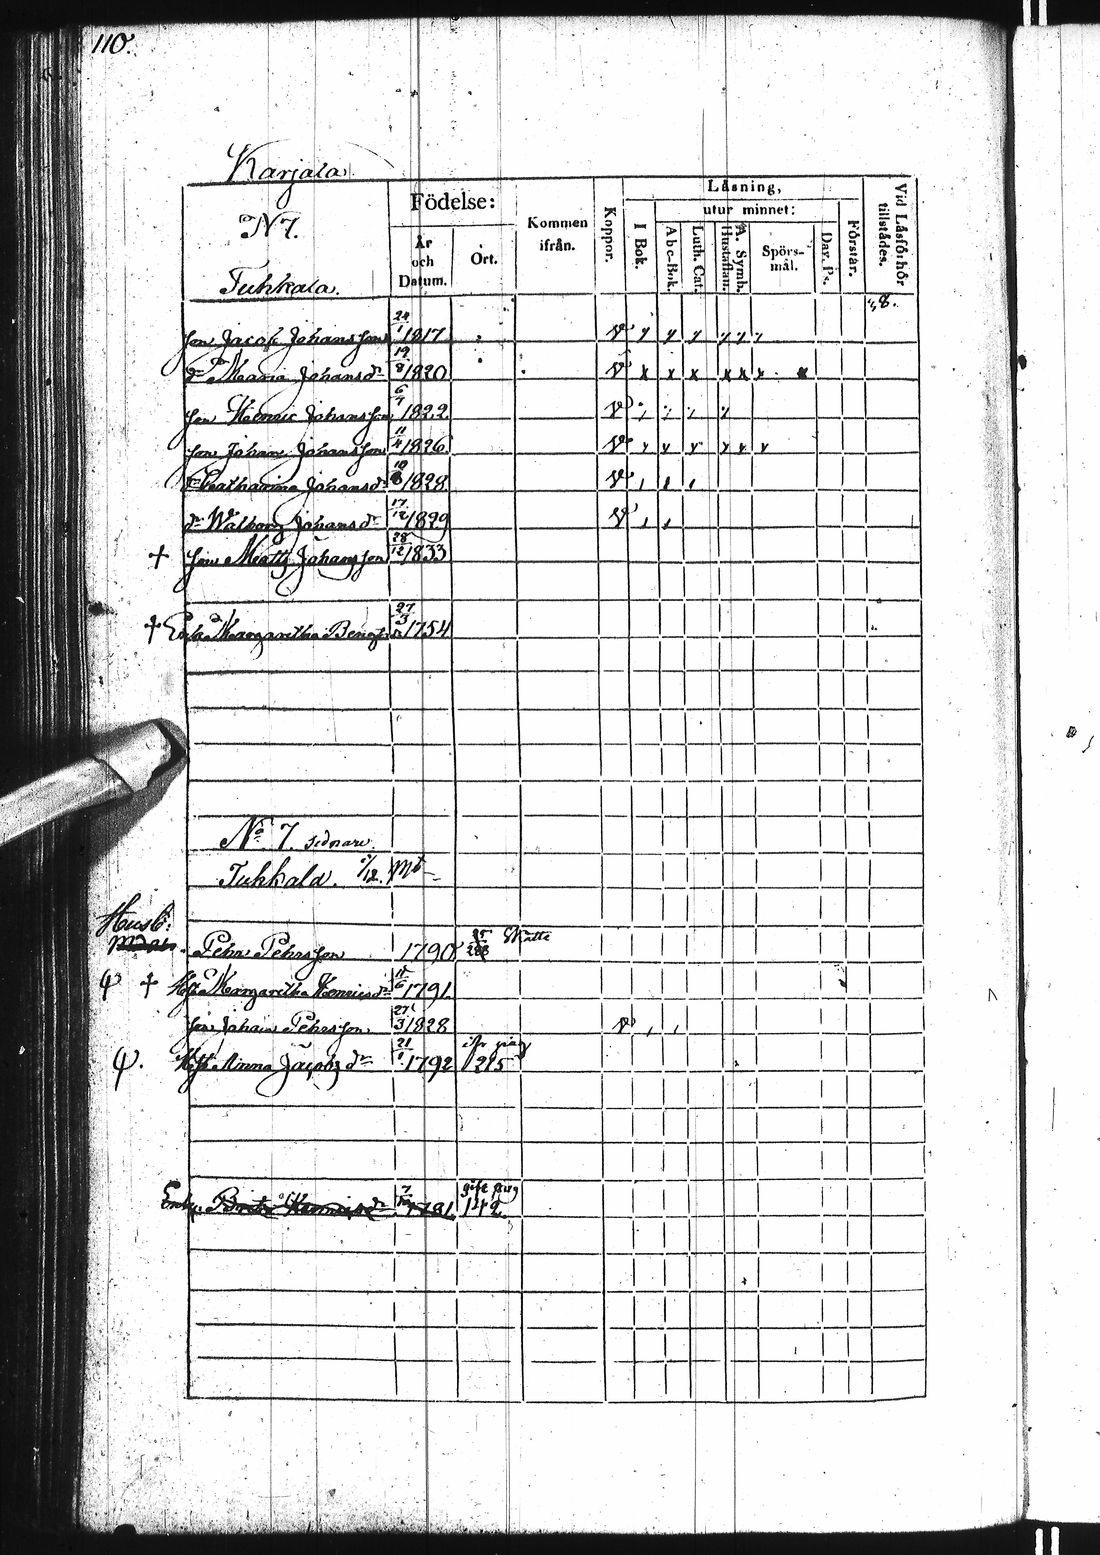 110.
Karjala
N 7.
Tuhkala.
Födelse:
År och Datum.
Ort.
Kommen ifrån.
Koppor.
Läsning,
I Bok.
utur minnet:
Abc-Bok.
Luth. Cat.
Hustaflan.
A. Symb.
Spörs-mål.
Dav. Ps.
Förstår.
Vid Läsförhör tillstädes.
Son Jacob Johansson 24/1 1817 V
dr Maria Johansdr 19/8 1820 V x x x x x x x
Son Henric Johansson 6/7 1822 V
Son Johan Johansson 11/4 1826 V
dr Catharina Johansdr 1828 V
dr Walborg Johansdr 17/12 1829 V
+ Son Matts Johansson 28/12 1833
+ Enka Margaretha Bengtsdr 27/3 1754
No 7. sednare
Tuhkala. 1/12 Mt
Husb:
Pehr Pehrsson 1790
+ Hust. Margaretha Henricsdr 1791
Son Johan Pehrsson 27/3 1828 V
Hust. Anna Jacobsdr 21/1 1792 215
gift pag
Enka. Henricsdr 1781 142